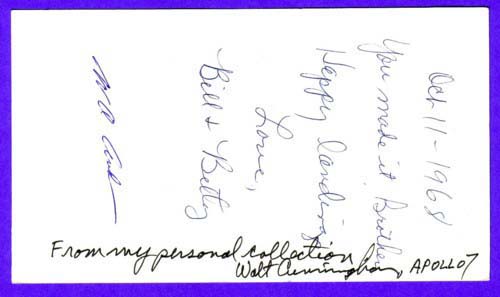 Oct 11-1968
You made it Brother
Happy Landings
Love,
Bill & Betty
From my personal collection
Walt Cunningham, APOLLO 7